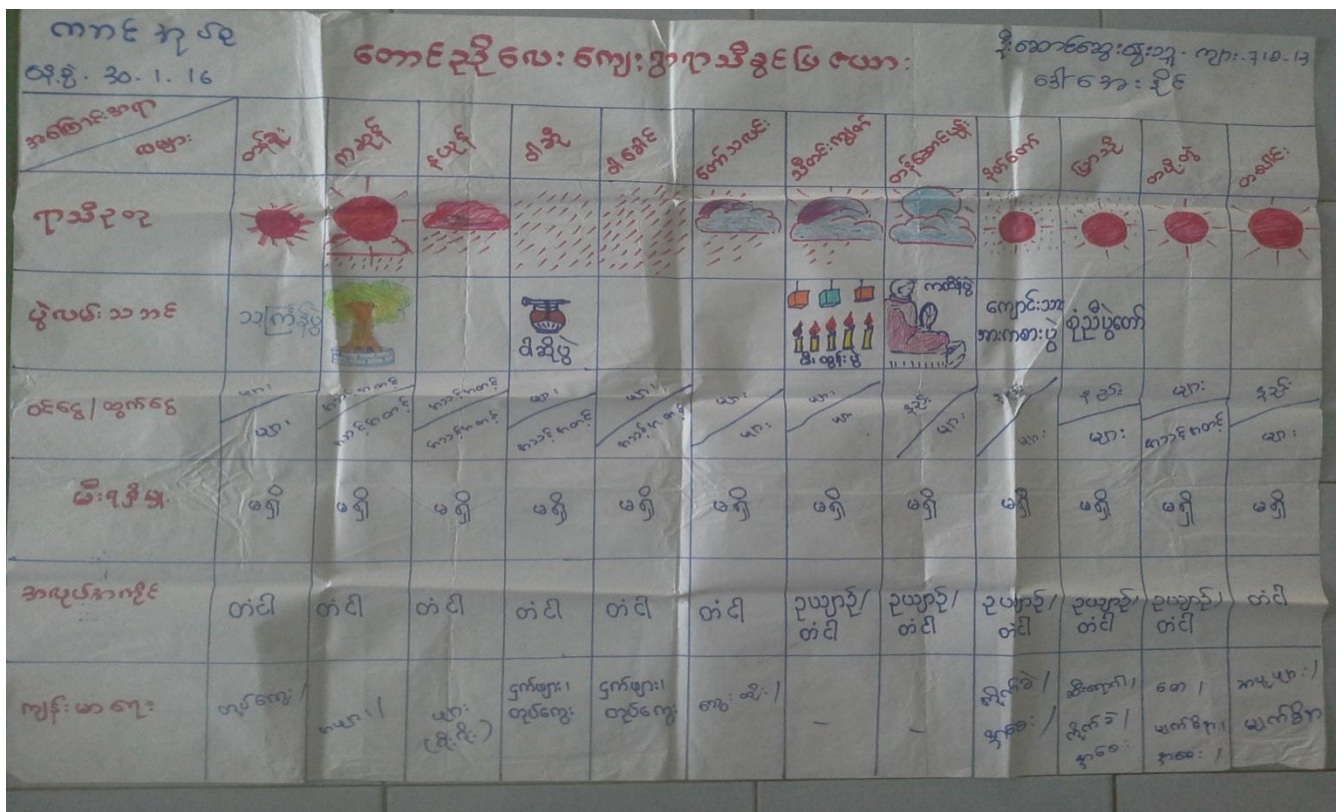 ကဘင် အုပ်စု
နေ့စွဲ. 30.1.16
တောင်ဥဒိုလေး ကျေးရွာရာသီခွင်ပြဇယား
ဒေါ်အေးခိုင်
အကြောင်းအရာ
လများ
တန်ခူး
ကဆုန်
နယုန်
ဝါဆို
ဝါခေါင်
တော်သလင်း
သီတင်းကျွတ်
တန်ဆောင်မုန်း
နတ်တော်
ပြာသို
တပို့တွဲ
တပေါင်း
ရာသီဥတု
ပွဲလမ်းသဘင်
သင်္ကြန်ပွဲ
ဝါဆိုပွဲ
မီးထွန်းပွဲ
ကထိန်ပွဲ
ကျောင်းသား
အားကစားပွဲ
စုံညီပွဲတော်
ဝင်ငွေ/ထွက်ငွေ
များ
များ
အသင့်အတင့်
အသင့်အတင့်
အသင့်အတင့်
အသင့်အတင့်
များ
အသင့်အတင့်
များ
အသင့်အတင့်
များ
များ
များ
များ
နည်း
များ
နည်း
များ
နည်း
များ
များ
အသင့်အတင့်
နည်း
များ
မီးရရှိမှု
မရှိ မရှိ မရှိ မရှိ မရှိ မရှိ မရှိ မရှိ မရှိ မရှိ မရှိ မရှိ
အလုပ်အကိုင်
တံငါ
တံငါ
တံငါ
တံငါ
တံငါ
တံငါ
ဥယျာဉ်/
တံငါ
ဥယျာဉ်/
တံငါ
ဥယျာဉ်/
တံငါ
ဥယျာဉ်/
တံငါ
ဥယျာဉ်/
တံငါ
တံငါ
ကျန်းမာရေး
တုပ်ကွေး
ဖျား
ငှက်ဖျား၊
တုပ်ကွေး
ငှက်ဖျား၊
တုပ်ကွေး
–
–
ကိုက်ခဲ/
နှာစေး/
ကိုက်ခဲ/
နှာစေး
မျက်စိနာ၊
နှာစေး/
မျက်စိနာ